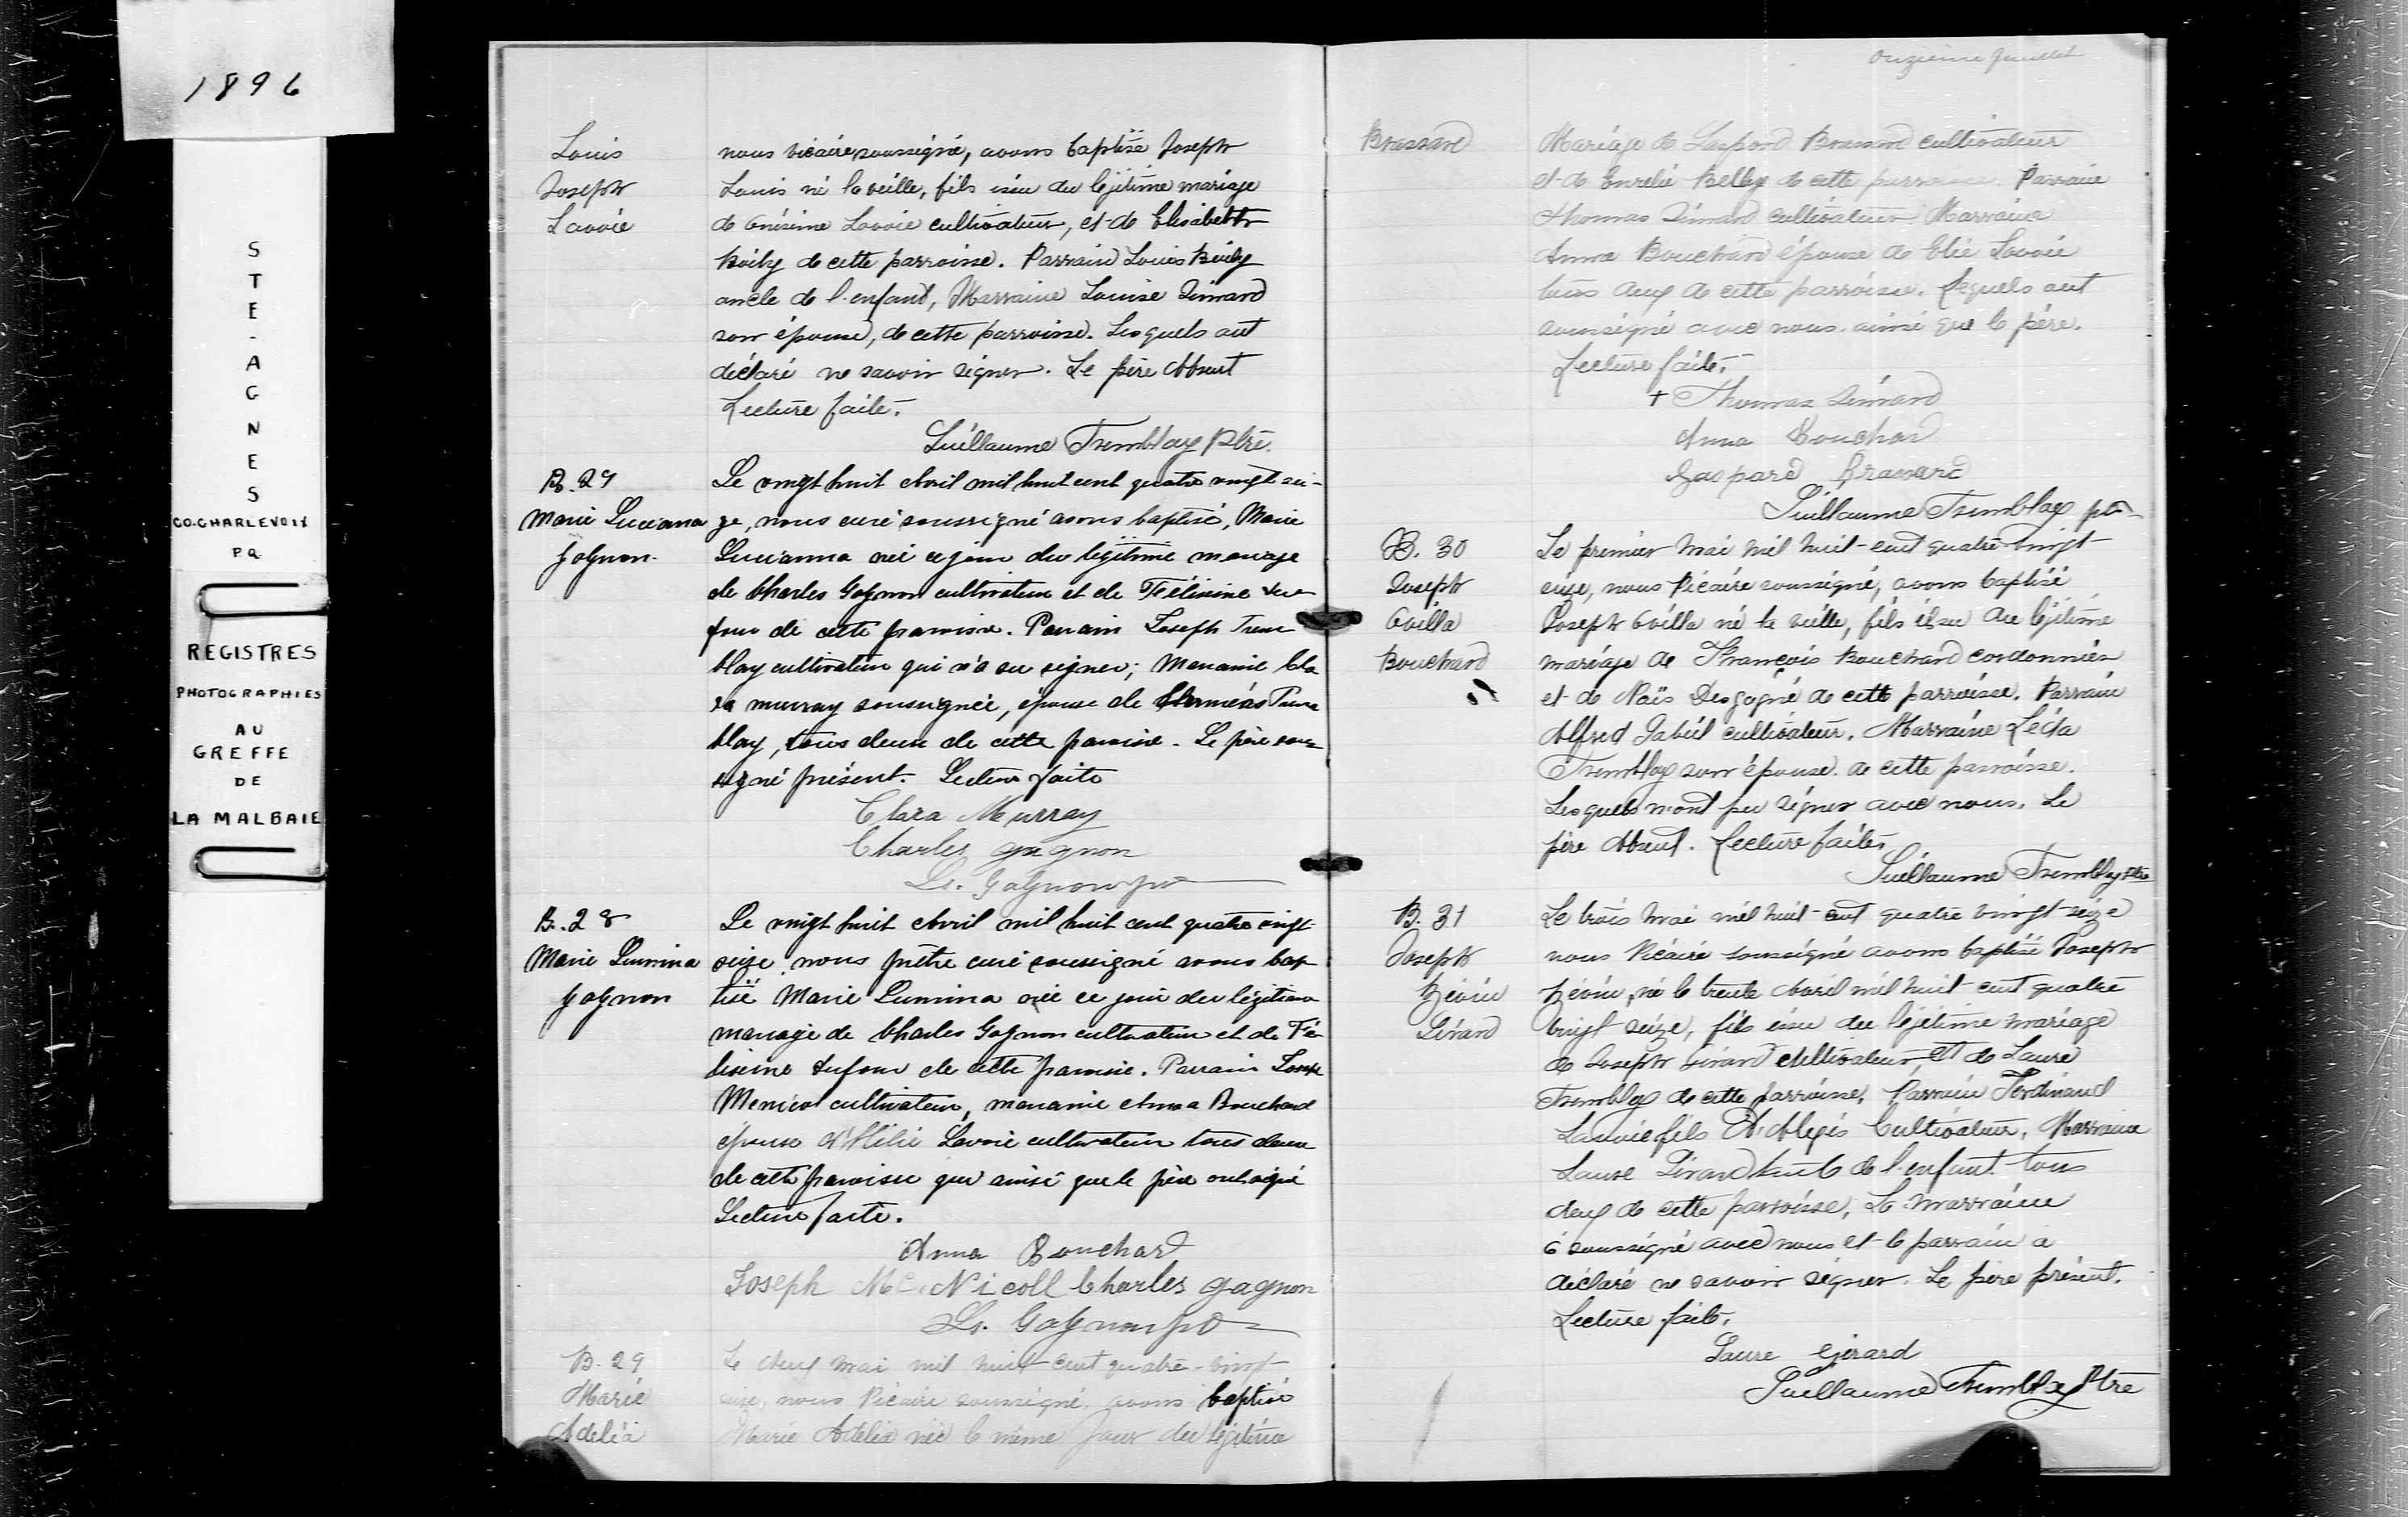 1896
STE-AGNES
CO. CHARLEVOIX
P Q
REGISTRES
PHOTOGRAPHIES
AU
GREFFE
DE
LA MALBAIE
Louis
Joseph
Lavoie
nous vicaire soussigné, avons baptisé Joseph
Louis né la veille, fils issu du légitime mariage
de Onésime Lavoie cultivateur, et de Elisabeth
Boily de cette parroisse. Parrain Louis Boily
oncle de l'enfant, Marraine Louise Simard
son épouse, de cette parroisse. Lesquels ont
déclaré ne savoir signer. Le père Absent
Lecture faite.
Guillaume Tremblay Ptre.
B. 27
Marie Lucianna
Gagnon
Le vingt huit Avril mil huit cent quatre vingt sei-
ze, nous curé soussigné avons baptisé, Marie
Lucianna née ce jour du légitime mariage
de Charles Gagnon cultivateur et de Félixine Du-
four de cette paroisse. Parrain Joseph Trem
blay cultivateur qui n'a su signer; Marraine Cla
ra Murray soussignée, épouse de Trem
blay, tous deux de cette paroisse. Le père sous
signé présent. Lecture faite
Clara Murray
Charles gagnon
Ls. Gagnon ptr
B. 28
Marie Lumina
Gagnon
Le vingt huit Avril mil huit cent quatre vingt
seize nous prêtre curé soussigné avons bap
tisé Marie Lumina née ce jour du légitime
mariage de Charles Gagnon cultivateur et de Fé
lixine Dufour de cette paroisse. Parrain Joseph
cultivateur, marraine Anna Bouchard
épouse d'Élie Lavoie cultivateur tous deux
de cette paroisse qui ainsi que le père ont signé
Lecture faite.
Anna Bouchard
Joseph Mc. Nicoll Charles gagnon
Ls. Gagnon ptr
B. 29
Marie
Adelia
Le deux Mai mil huit cent quatre-vingt
seize, nous Vicaire soussigné, avons baptisé
Marie Adelia née le même Jour du légitime
Onzième feuillet
Brassard
Mariage de Gaspard Brassard cultivateur
et de de cette parroisse. Parrain
Thomas Simard cultivateur Marraine
Anna Bouchard épouse de Elie Lavoie
tous deux de cette parroisse. Lequels ont
soussigné avec nous ainsi que le père.
Lecture faite.
+ Thomas Simard
Anna Bouchard
Gaspard Brassard
Guillaume Tremblay ptr
B. 30
Joseph
Ovilla
Bouchard
Le premier Mai mil huit-cent quatre-vingt
seize, nous Vicaire soussigné, avons baptisé
Joseph Ovilla né la veille, fils issu du légitime
mariage de François Bouchard cordonnier
et de Naïs Desgagné de cette parroisse. Parrain
Alfred cultivateur. Marraine Léda
Tremblay son épouse de cette parroisse.
Lesquels n'ont pu signer avec nous. Le
père Absent. Lecture faite.
Guillaume Tremblay Ptre
B. 31
Joseph
Girard
Le trois Mai mil huit-cent quatre vingt-seize
nous Vicaire soussigné avons baptisé Joseph
né le trente Avril mil huit cent quatre
vingt seize, fils issu du légitime mariage
de Joseph Girard cultivateur, et de Laure
Tremblay de cette parroisse. Parrain Ferdinand
Lavoie fils D'Alexis Cultivateur, Marraine
Laure Girard tante de l'enfant tous
deux de cette parroisse, La Marraine
à soussigné avec nous et le parrain a
déclaré ne savoir signer. Le père présent.
Lecture faite.
Laure Girard
Guillaume Tremblay Ptre